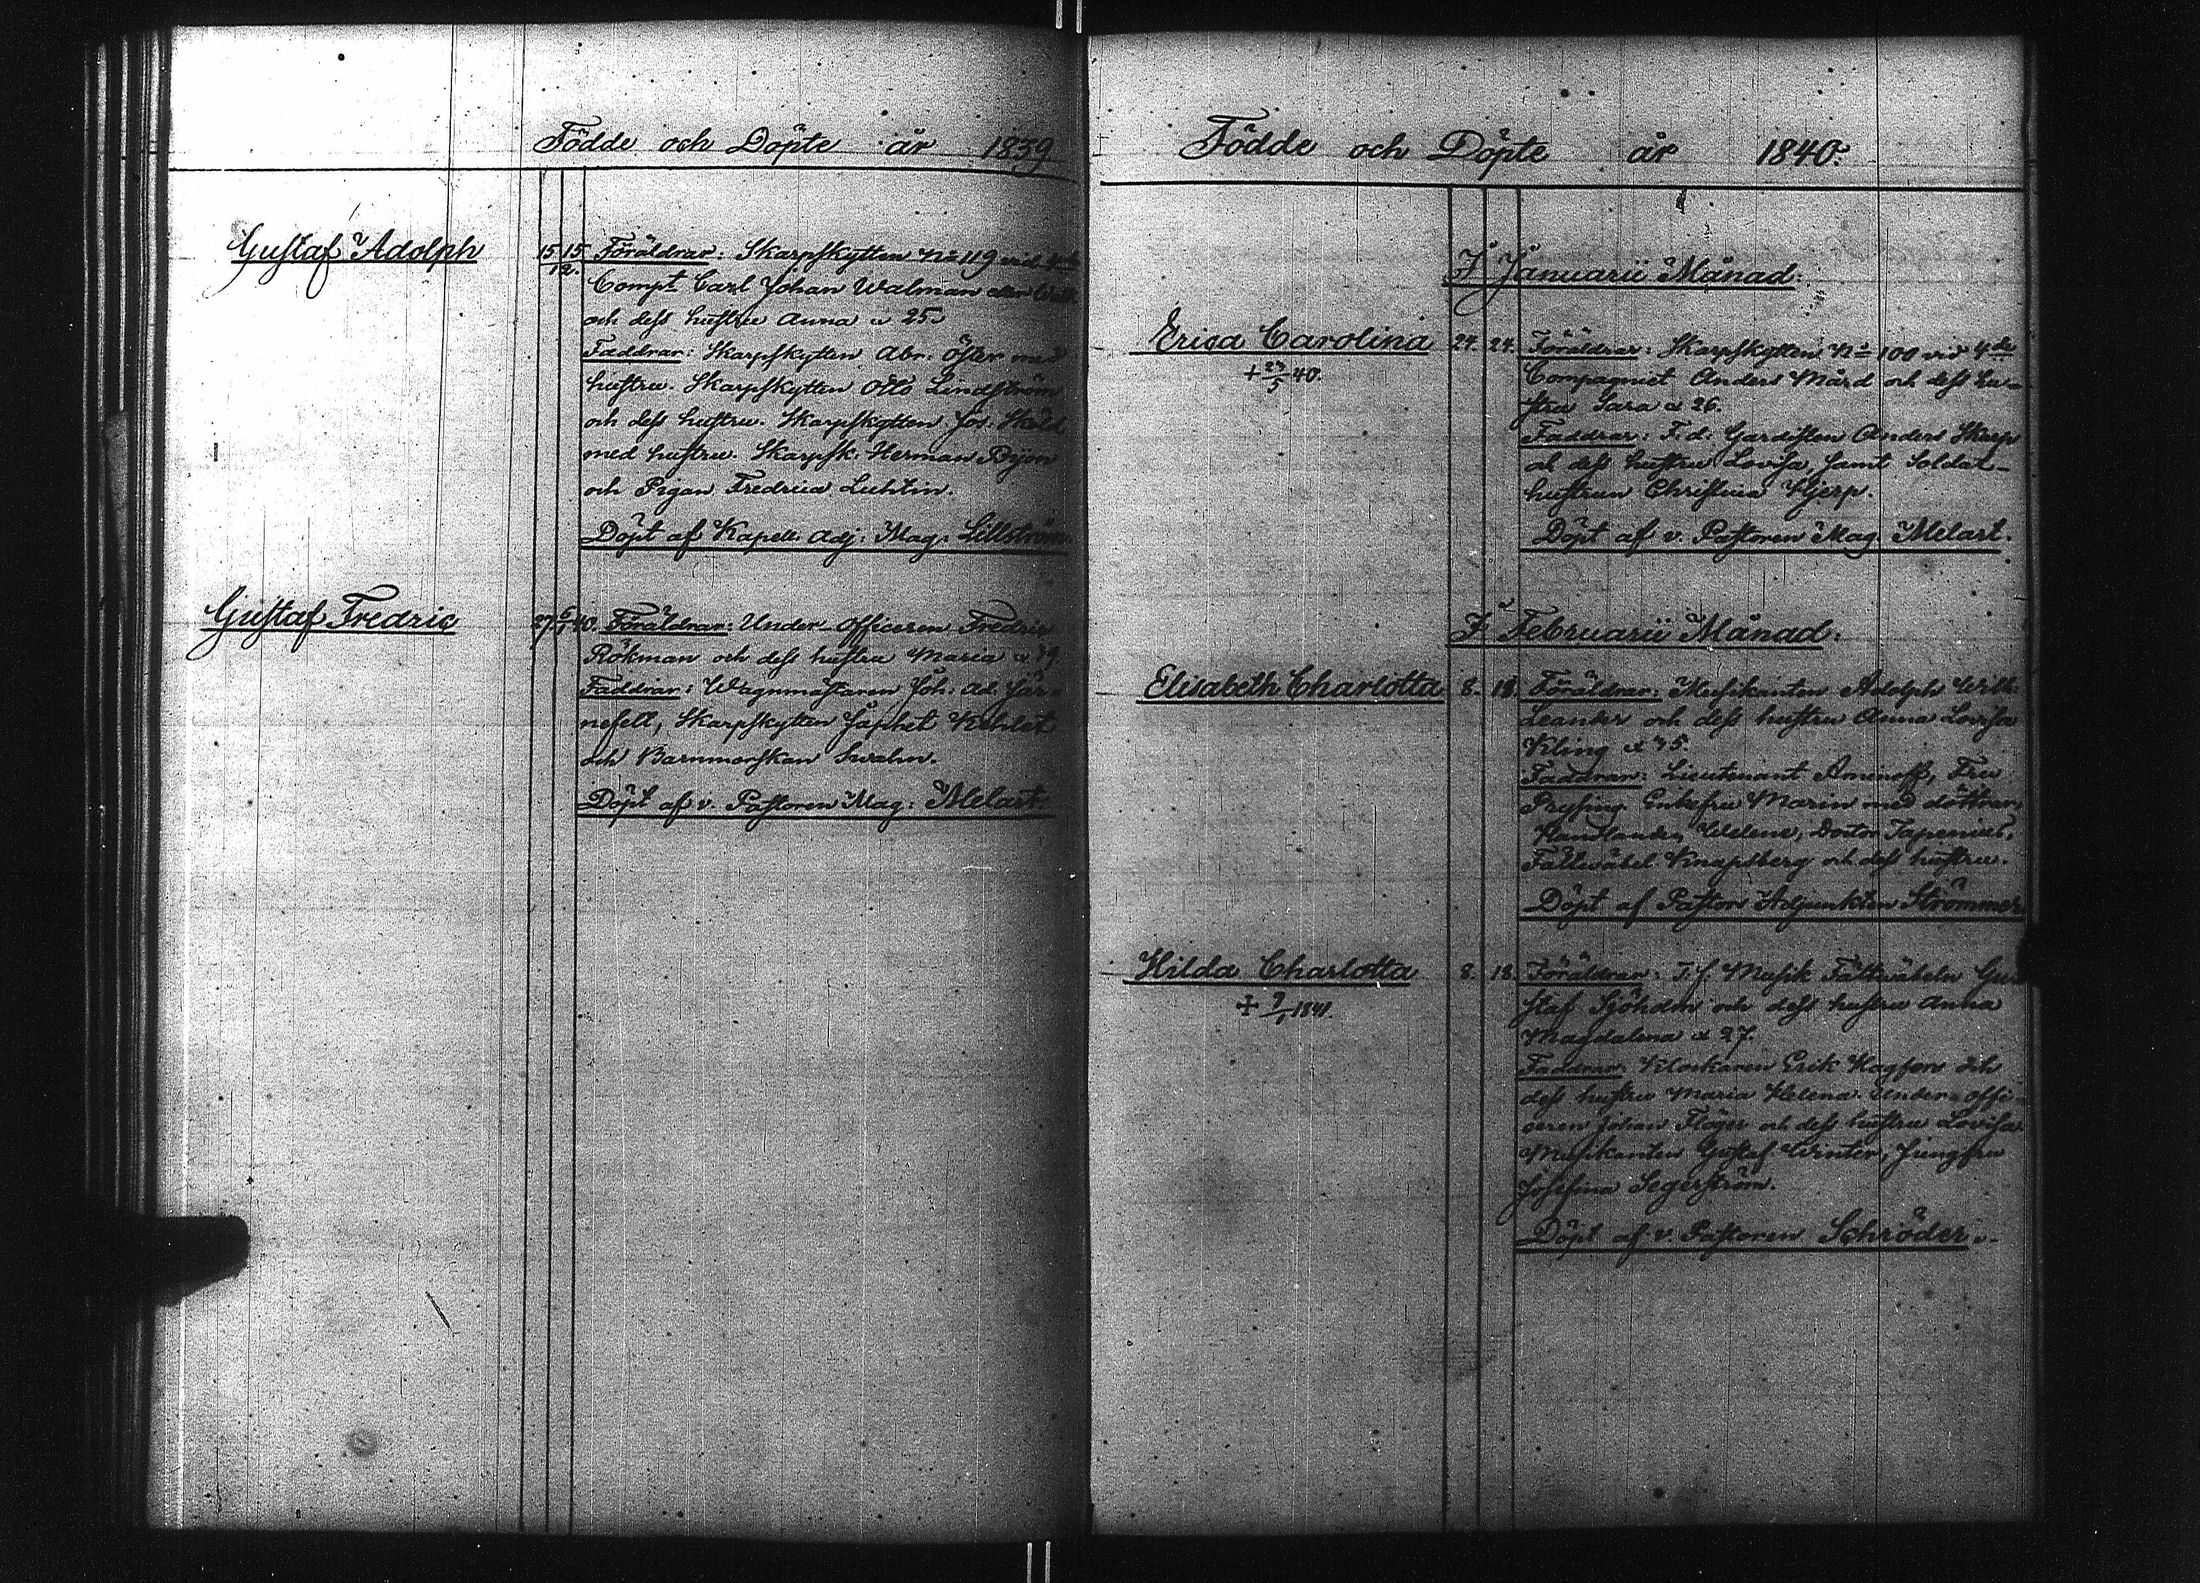 Födde och Döpte år 1839
Gustaf Adolph
15 15/12. Föräldrar: Skarpskytten No 119 vid 4de
Compt Carl Johan Walman eller
och dess hustru Anna æ 25.
Faddrar: Skarpskytten Abr. Öster med
hustru. Skarpskytten Otto Lindström
och dess hustru. Skarpskytten Jos. Sköld
med hustru. Skarpsk: Herman Björn
och Pigan Fredrica Luhtin.
Döpt af Kapell. Adj: Mag: Lillström
Gustaf Fredric
27. 6/1 40. Föräldrar: Under-officeren Fredric
Rökman och dess hustru Maria æ 29
Faddrar: Wagnmästaren Joh: Ad. Jär-
nefelt, Skarpskytten Japhet
och Barnmorskan Swahn.
Döpt af v. Pastoren Mag: Melart
Födde och Döpte år 1840.
I Januarii Månad.
Erica Carolina
+ 23/5 40.
24. 24. Föräldrar: Skarpskytten No 100 vid 4de
Compagniet Anders Mård och dess hu-
stru Sara æ 26.
Faddrar: F.d. Gardisten Anders Skarp
och dess hustru Lovisa, samt Soldat-
hustrun Christina Hjerp.
Döpt af v. Pastoren Mag. Melart.
I Februarii Månad.
Elisabeth Charlotta
8. 18. Föräldrar: Musikanten Adolph Wilh:
Leander och dess hustru Anna Lovisa
Kling æ 35.
Faddrar: Lieutenant Aminoff, Fru
Enkefru Marin med döttrar,
Handlanden Doctor Tapenius,
Fältwäbel Knapsberg och dess hustru.
Döpt af Pastors Adjunkten Strömmer
Hilda Charlotta
+ 9/1 1841.
8. 18. Föräldrar: T.f. Musik Fältwäbeln Gu-
staf Sjöholm och dess hustru Anna
Magdalena æ 27.
Faddrar: Klockaren Erik Hagfors och
dess hustru Maria Helena. Under-offi-
ceren Johan Flöger och dess hustru Lovisa
Musikanten Gustaf Winter, Jungfru
Josefina Segerström.
Döpt af v. Pastoren Schröder.